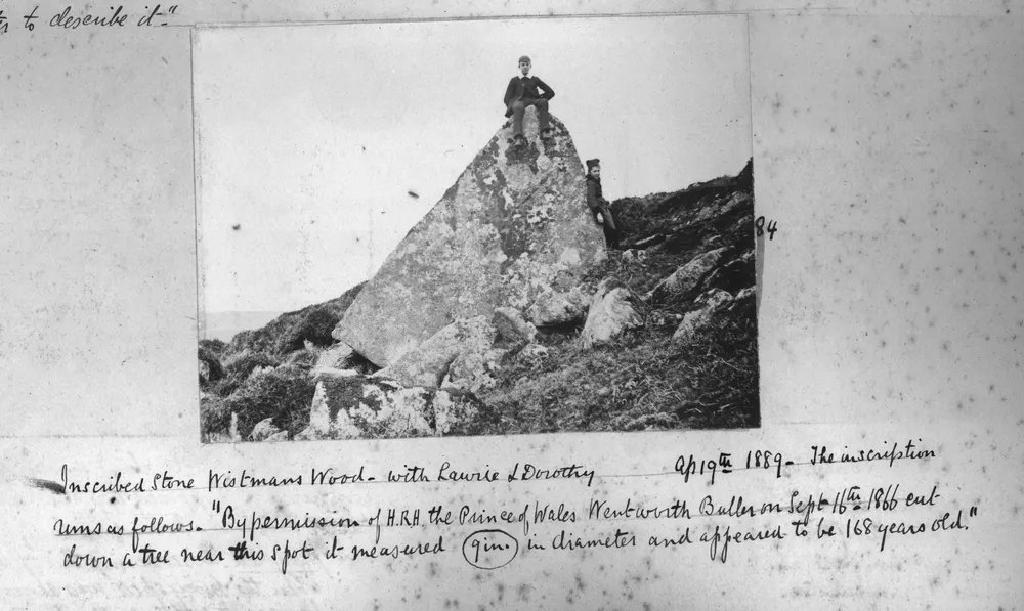 to describe it."
84
Inscribed Stone Wistmans Wood - with Lawrie & Dorothy Ap 19th 1889 - The inscription
runs as follows. "By permission of H.R.H. the Prince of Wales Wentworth Buller on Sept 16th 1866 cut
down a tree near this spot it measured 9in. in diameter and appeared to be 168 years old."